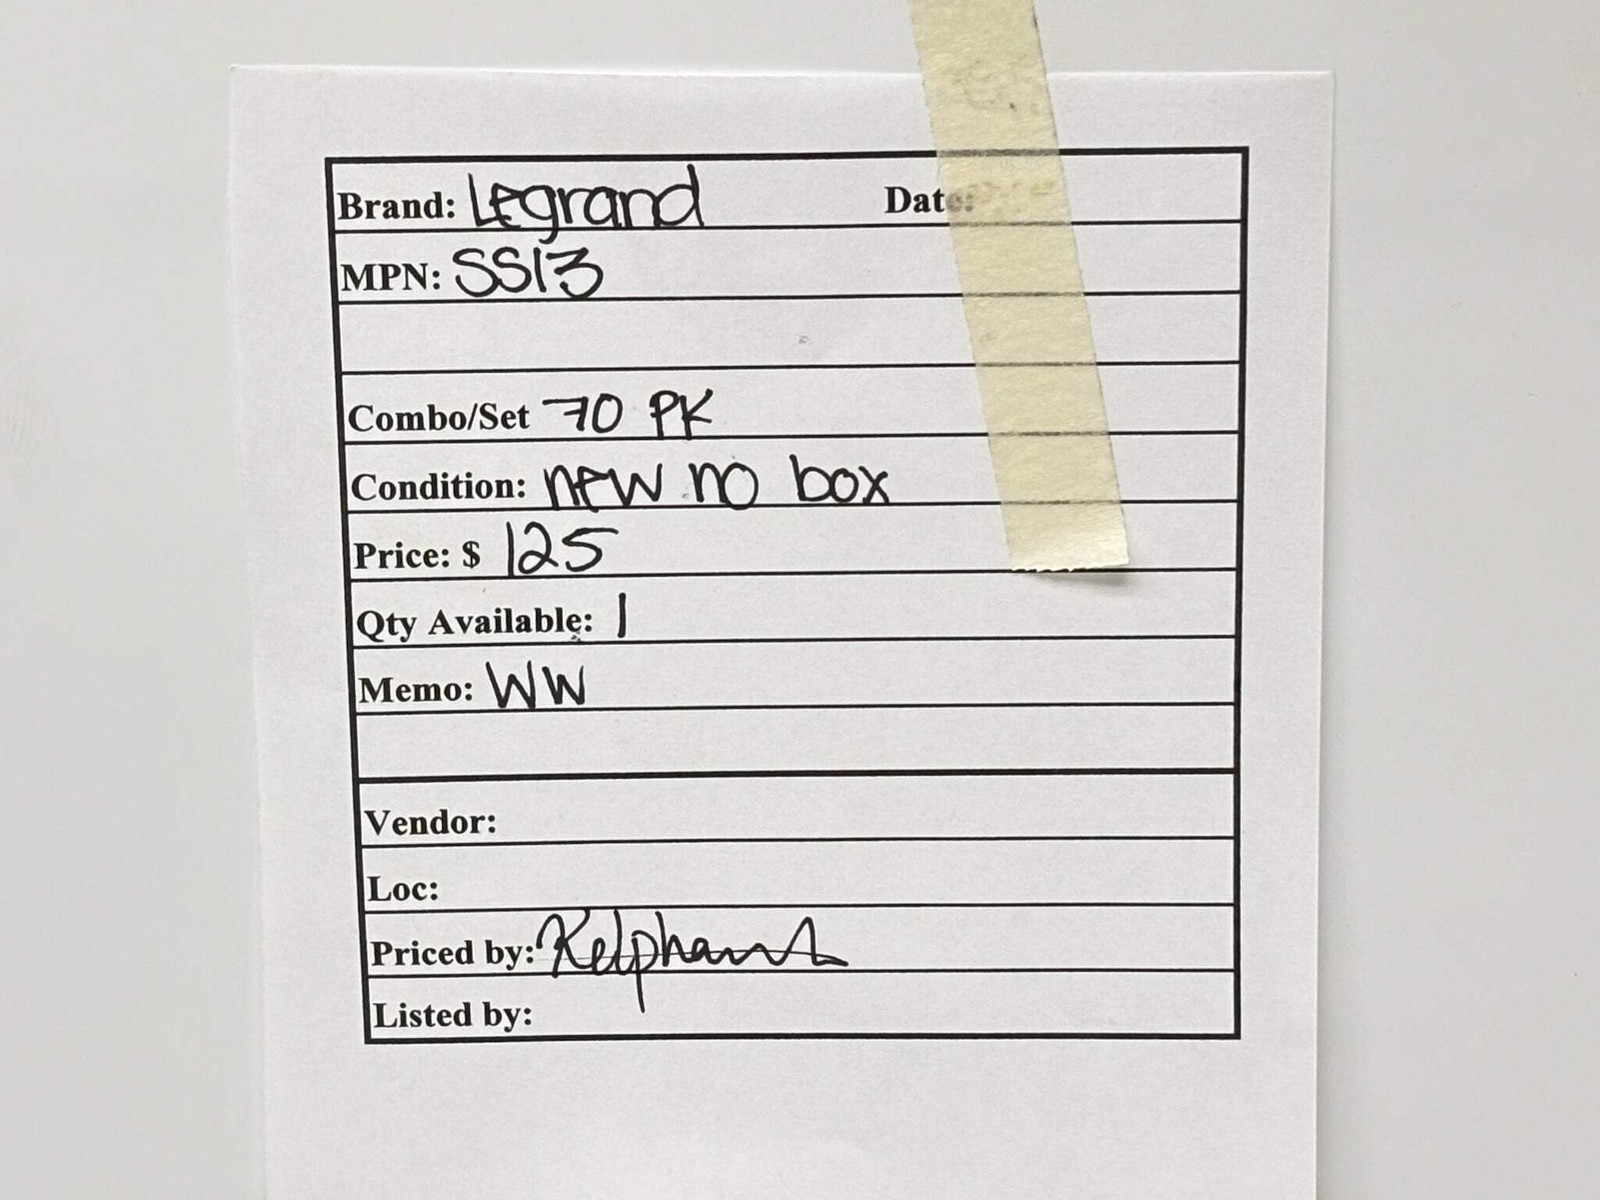 Brand: Legrand Date:
MPN: SS13
Combo/Set 70 PK
Condition: new no box
Price: $ 125
Qty Available: 1
Memo: WW
Vendor:
Loc:
Priced by:
Listed by: